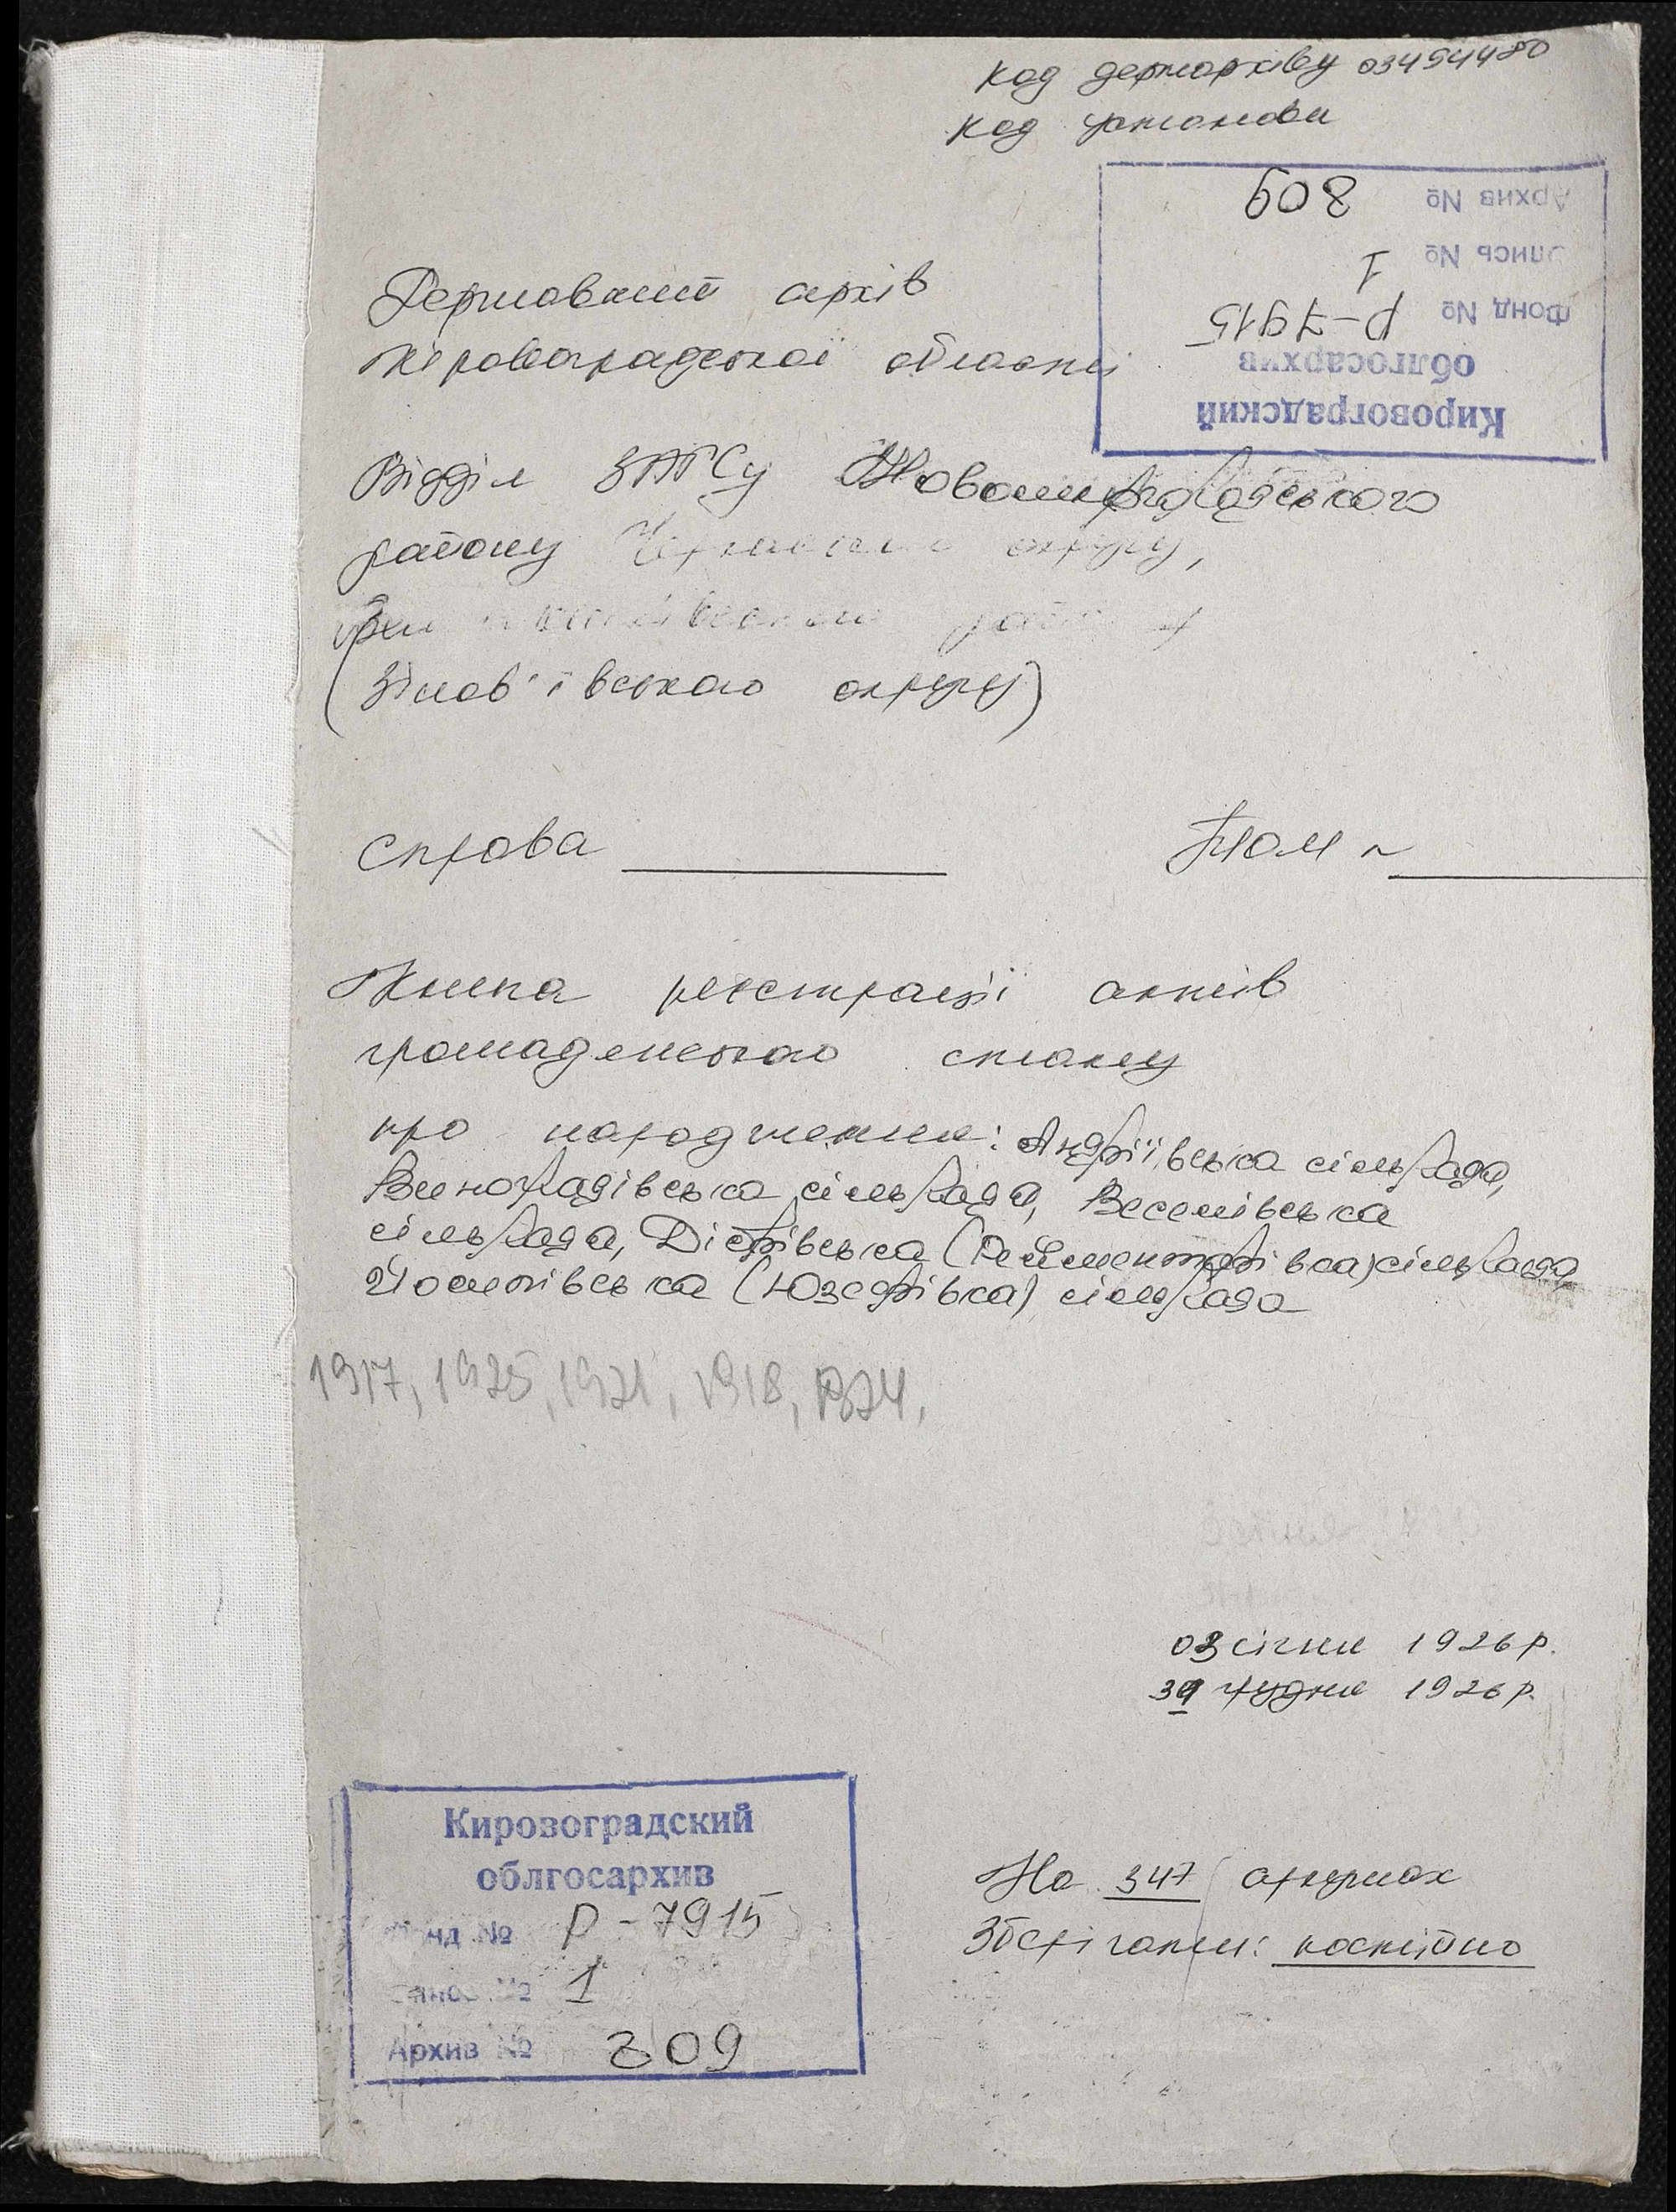 Код держархіву 03494480
Код установи
Кировоградский
облгосархив
Фонд № Р-7915
Опись № 1
Архив № 809
Державний архів
Кіровоградської області
Відділ ЗАГСу Новомиргородського
району округу,
Зінов'ївського округу)
справа
Том
Книга реєстрації актів
громадянського стану
про народження: Андріївська сільрада,
Виноградівська сільрада, Веселівська
сільрада, Дібрівська сільрада
Йосипівська (Юзефівка) сільрада
1917, 1925, 1921, 1918, 1924,
03 січня 1926 р.
грудня 1926 р.
Кировоградский
облгосархив
Фонд № Р-7915
Опись № 1
Архив № 809
На 347 аркушах
Зберігати: постійно